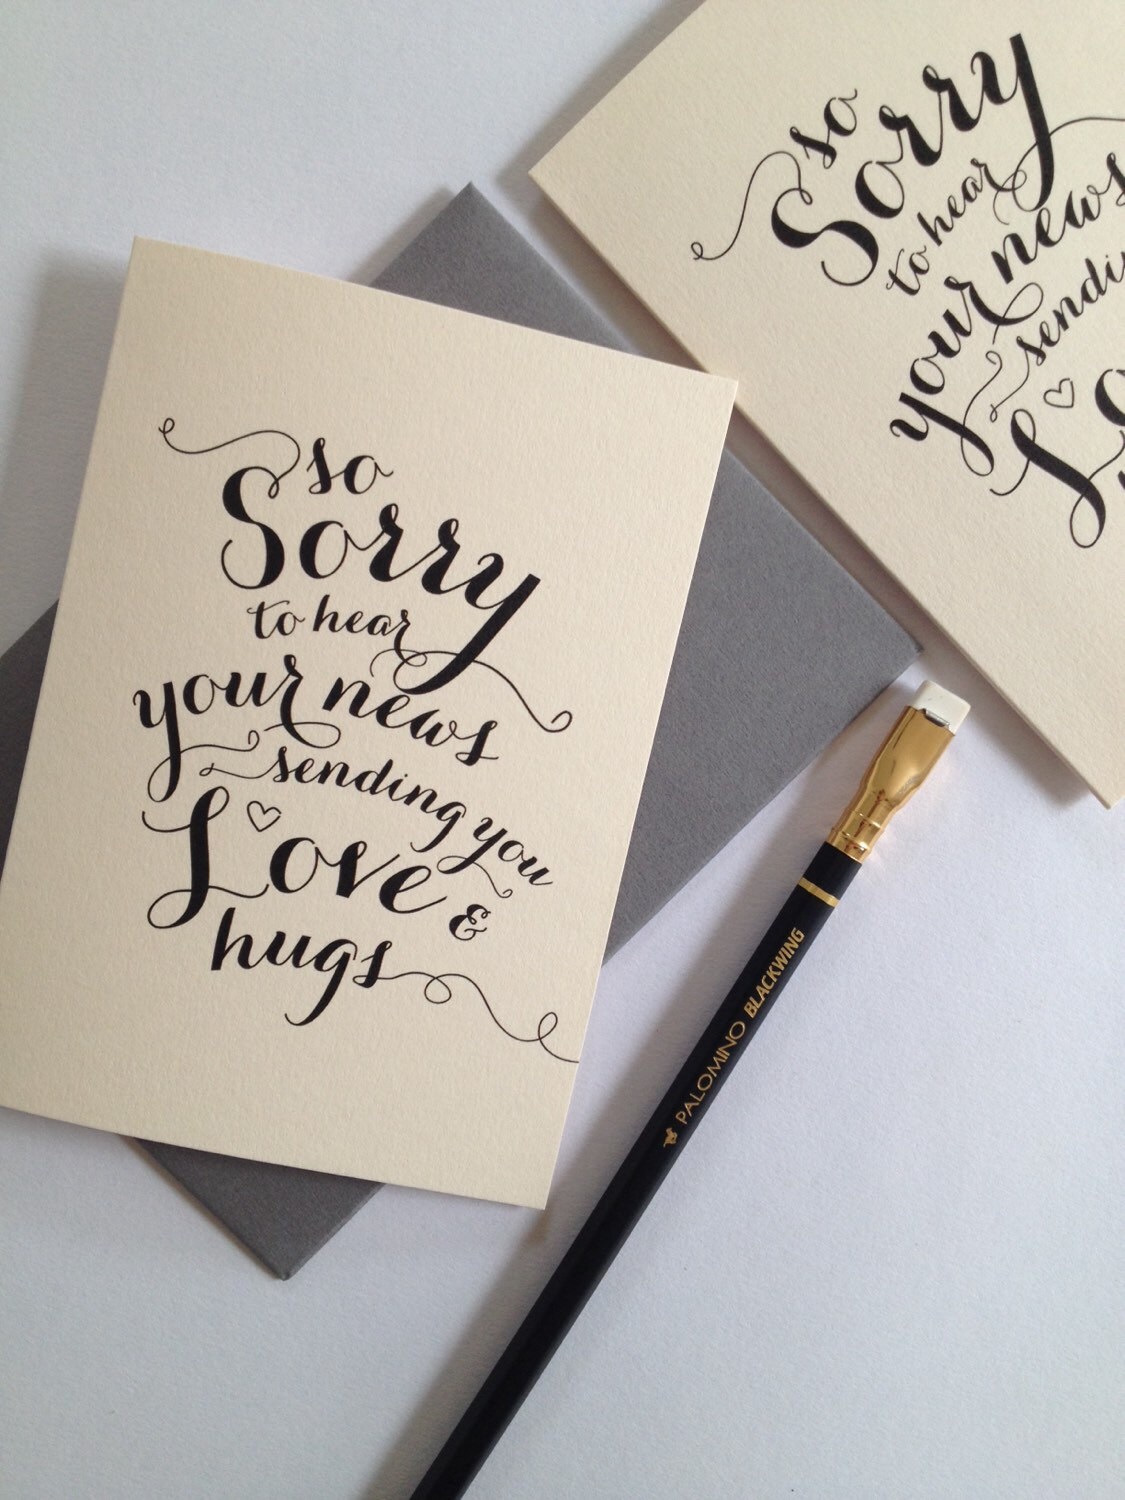 so
Sorry
to hear
your news
sending you
Love &
hugs
so
Sorry
to hear
your news
PALOMINO BLACKWING